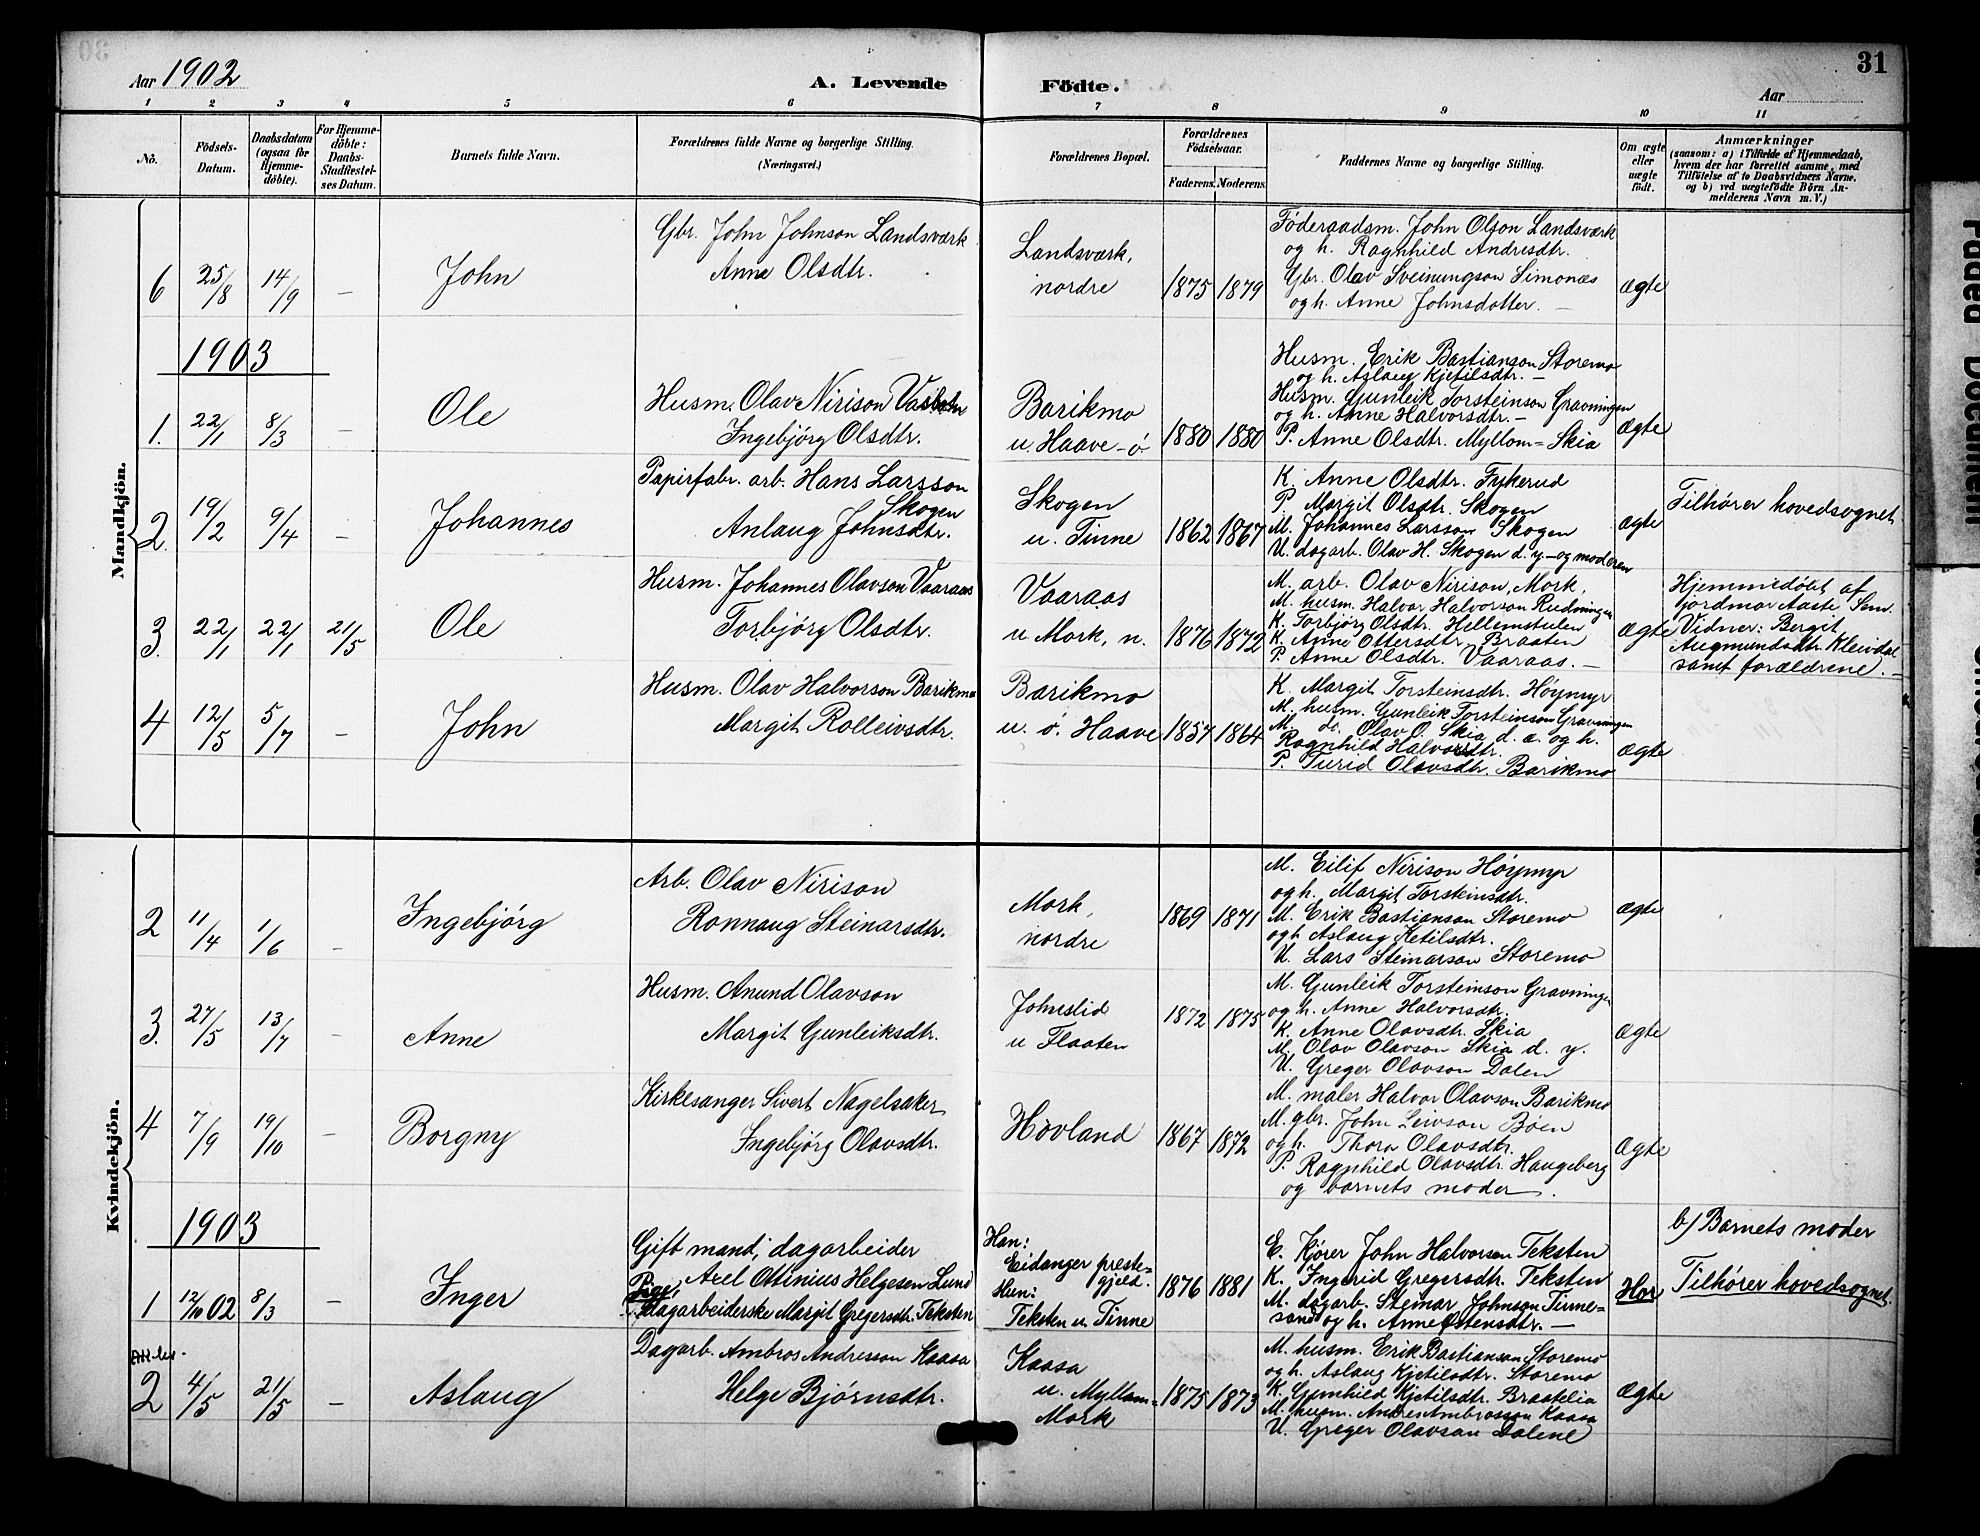 Aar 1902
A. Levende
Födte.
31
Aar
1 2 3 4 5 6 7 8 9 10 11
No.
Födsels-Datum.
Daabsdatum (ogsaa for Hjemme-döbte).
For Hjemme-döbte: Daabs-Stadfæstel-ses Datum.
Barnets fulde Navn.
Forældrenes fulde Navne og borgerlige Stilling.
(Næringsvei.)
Forældrenes Bopæl.
Forældrenes Födselsaar.
Faderens. Moderens.
Faddernes Navne og borgerlige Stilling.
Om ægte eller uægte födt.
Anmærkninger
(saasom: a) i Tilfælde af Hjemmedaab,
hvem der har forrettet samme, med
Tilföielse af to Daabsvidners Navne,
og b) ved uægtefödte Börn An-
melderens Navn m.V.)
Mandkjön.
6 25/8 14/9 – John
Gbr. John Johnson Landsværk
Anne Olsdtr.
Landsværk,
nordre
1875 1879
Föderaadsm. John Olson Landsværk
og h. Ragnhild Andresdtr.
Gbr. Olav Sveinungson Simonæs
og h. Anne Johnsdotter. –
ægte
1903
1. 22/1 8/3 – Ole
Husm. Olav Nirison
Ingebjörg Olsdtr.
Barikmo
u. Haave – ö
1880 1880
Husm. Erik Bastianson Storemo
og h. Aslaug Kjetilsdtr. –
Husm. Gunleik Torsteinson Gravningen
og h. Anne Halvorsdtr. –
P. Anne Olsdtr. Myllom= Skia
ægte
2. 19/2 9/4 – Johannes
Papirfabr. arb. Hans Larsson
Skogen
Anlaug Johnsdtr.
Skogen
u. Tinne
1862 1867
K. Anne Olsdtr. Fykerud
P. Margit Olsdtr. Skogen
M. Johannes Larsson Skogen
U. dagarb. Olav H. Skogen d. y. – og moderen
ægte
Tilhører hovedsognet
3. 22/1 22/1 21/5 Ole
Husm. Johannes Olavson Vaaraas
Torbjörg Olsdtr.
Vaaraas
u. Mork, n.
1876 1872
M. arb. Olav Nirison, Mork,
M. husm. Halvor Halvorson Rudningen
K. Torbjörg Olsdtr. Hellemstulen
K. Anne Ottersdtr. Braaten
P. Anne Olsdtr. Vaaraas. –
ægte
Hjemmedøbt af
jordmor Aaste Sem.
Vidner: Bergit
Augmundsdtr. Kleivdal
samt forældrene. –
4 12/5 5/7 – John
Husm. Olav Halvorson Barikmo
Margit Rolleivsdtr.
Barikmo
u. ö. Haave
1857 1864
K. Margit Torsteinsdtr. Höymyr
M. husm. Gunleik Torsteinson Gravningen
M. do. Olav O. Skia d. æ. og h.
Ragnhild Halvorsdtr.
P. Turid Olavsdtr. Barikmo
ægte
Kvindekjön.
2 11/4 1/6 – Ingebjörg
Arb. Olav Nirison
Ronnaug Steinarsdtr.
Mork,
nordre
1869 1871
M. Eilif Nirison Höymyr
og h. Margit Torsteinsdtr.
M. Erik Bastianson Storemo
og h. Aslaug Ketilsdtr.
U. Lars Steinarson Storemo
ægte
3. 27/5 13/7 – Anne
Husm. Anund Olavson
Margit Gunleiksdtr.
Johnslid
u Flaaten
1872 1875
M. Gunleik Torsteinson Gravningen
og h. Anne Halvorsdtr.
K. Anne Olavsdtr. Skia
M. Olav Olavson Skia d. y.
U. Greger Olavson Dalen
ægte
4 7/9 19/10 – Borgny
Kirkesanger Sivert Nagelsaker
Ingebjörg Olavsdtr.
Hovland
1867 1872
M. maler Halvor Olavson Barikmo
M. gbr. John Leivson Boen
og h. Thora Olavsdtr.
P. Ragnhild Olavsdtr. Haugeberg
og barnets moder.
ægte
1903
1 12/10 02 8/3 – Inger
Gift mand, dagarbeider
Axel Ottinius Helgesen Lund
Pige,
Dagarbeiderske Margit Gregersdtr. Teksten
Han:
Eidanger preste=
gjeld.
Hun:
Teksten u. Tinne
1876 1881
E. Kjører John Halvorsen Teksten
K. Ingerid Gregersdtr. Teksten
M. dagarb. Steinar Johnson Tinne=
sand og h. Anne Østensdtr. –
Hor
b/ Barnets moder
Tilhører hovedsognet.
2 4/5 21/5 – Aslaug
Dagarb. Ambros Andresson Kaasa
Helge Bjørnsdtr.
Kaasa
u. Myllom=
Mork
1875 1873
M. husm. Erik Bastianson Storemo
og h. Aslaug Kjetilsdtr. Storemo
K. Gunhild Kjetilsdtr. Braatelia
M. husm. Andres Ambrosson Kaasa
U. Greger Olavson Dalene
ægte